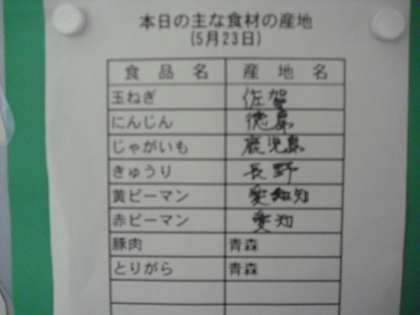 本日の主な食材の産地
(5月23日)
食品名 産地名
玉ねぎ 佐賀
にんじん 徳島
じゃがいも 鹿児島
きゅうり 長野
黄ピーマン 愛知
赤ピーマン 愛知
豚肉 青森
とりがら 青森